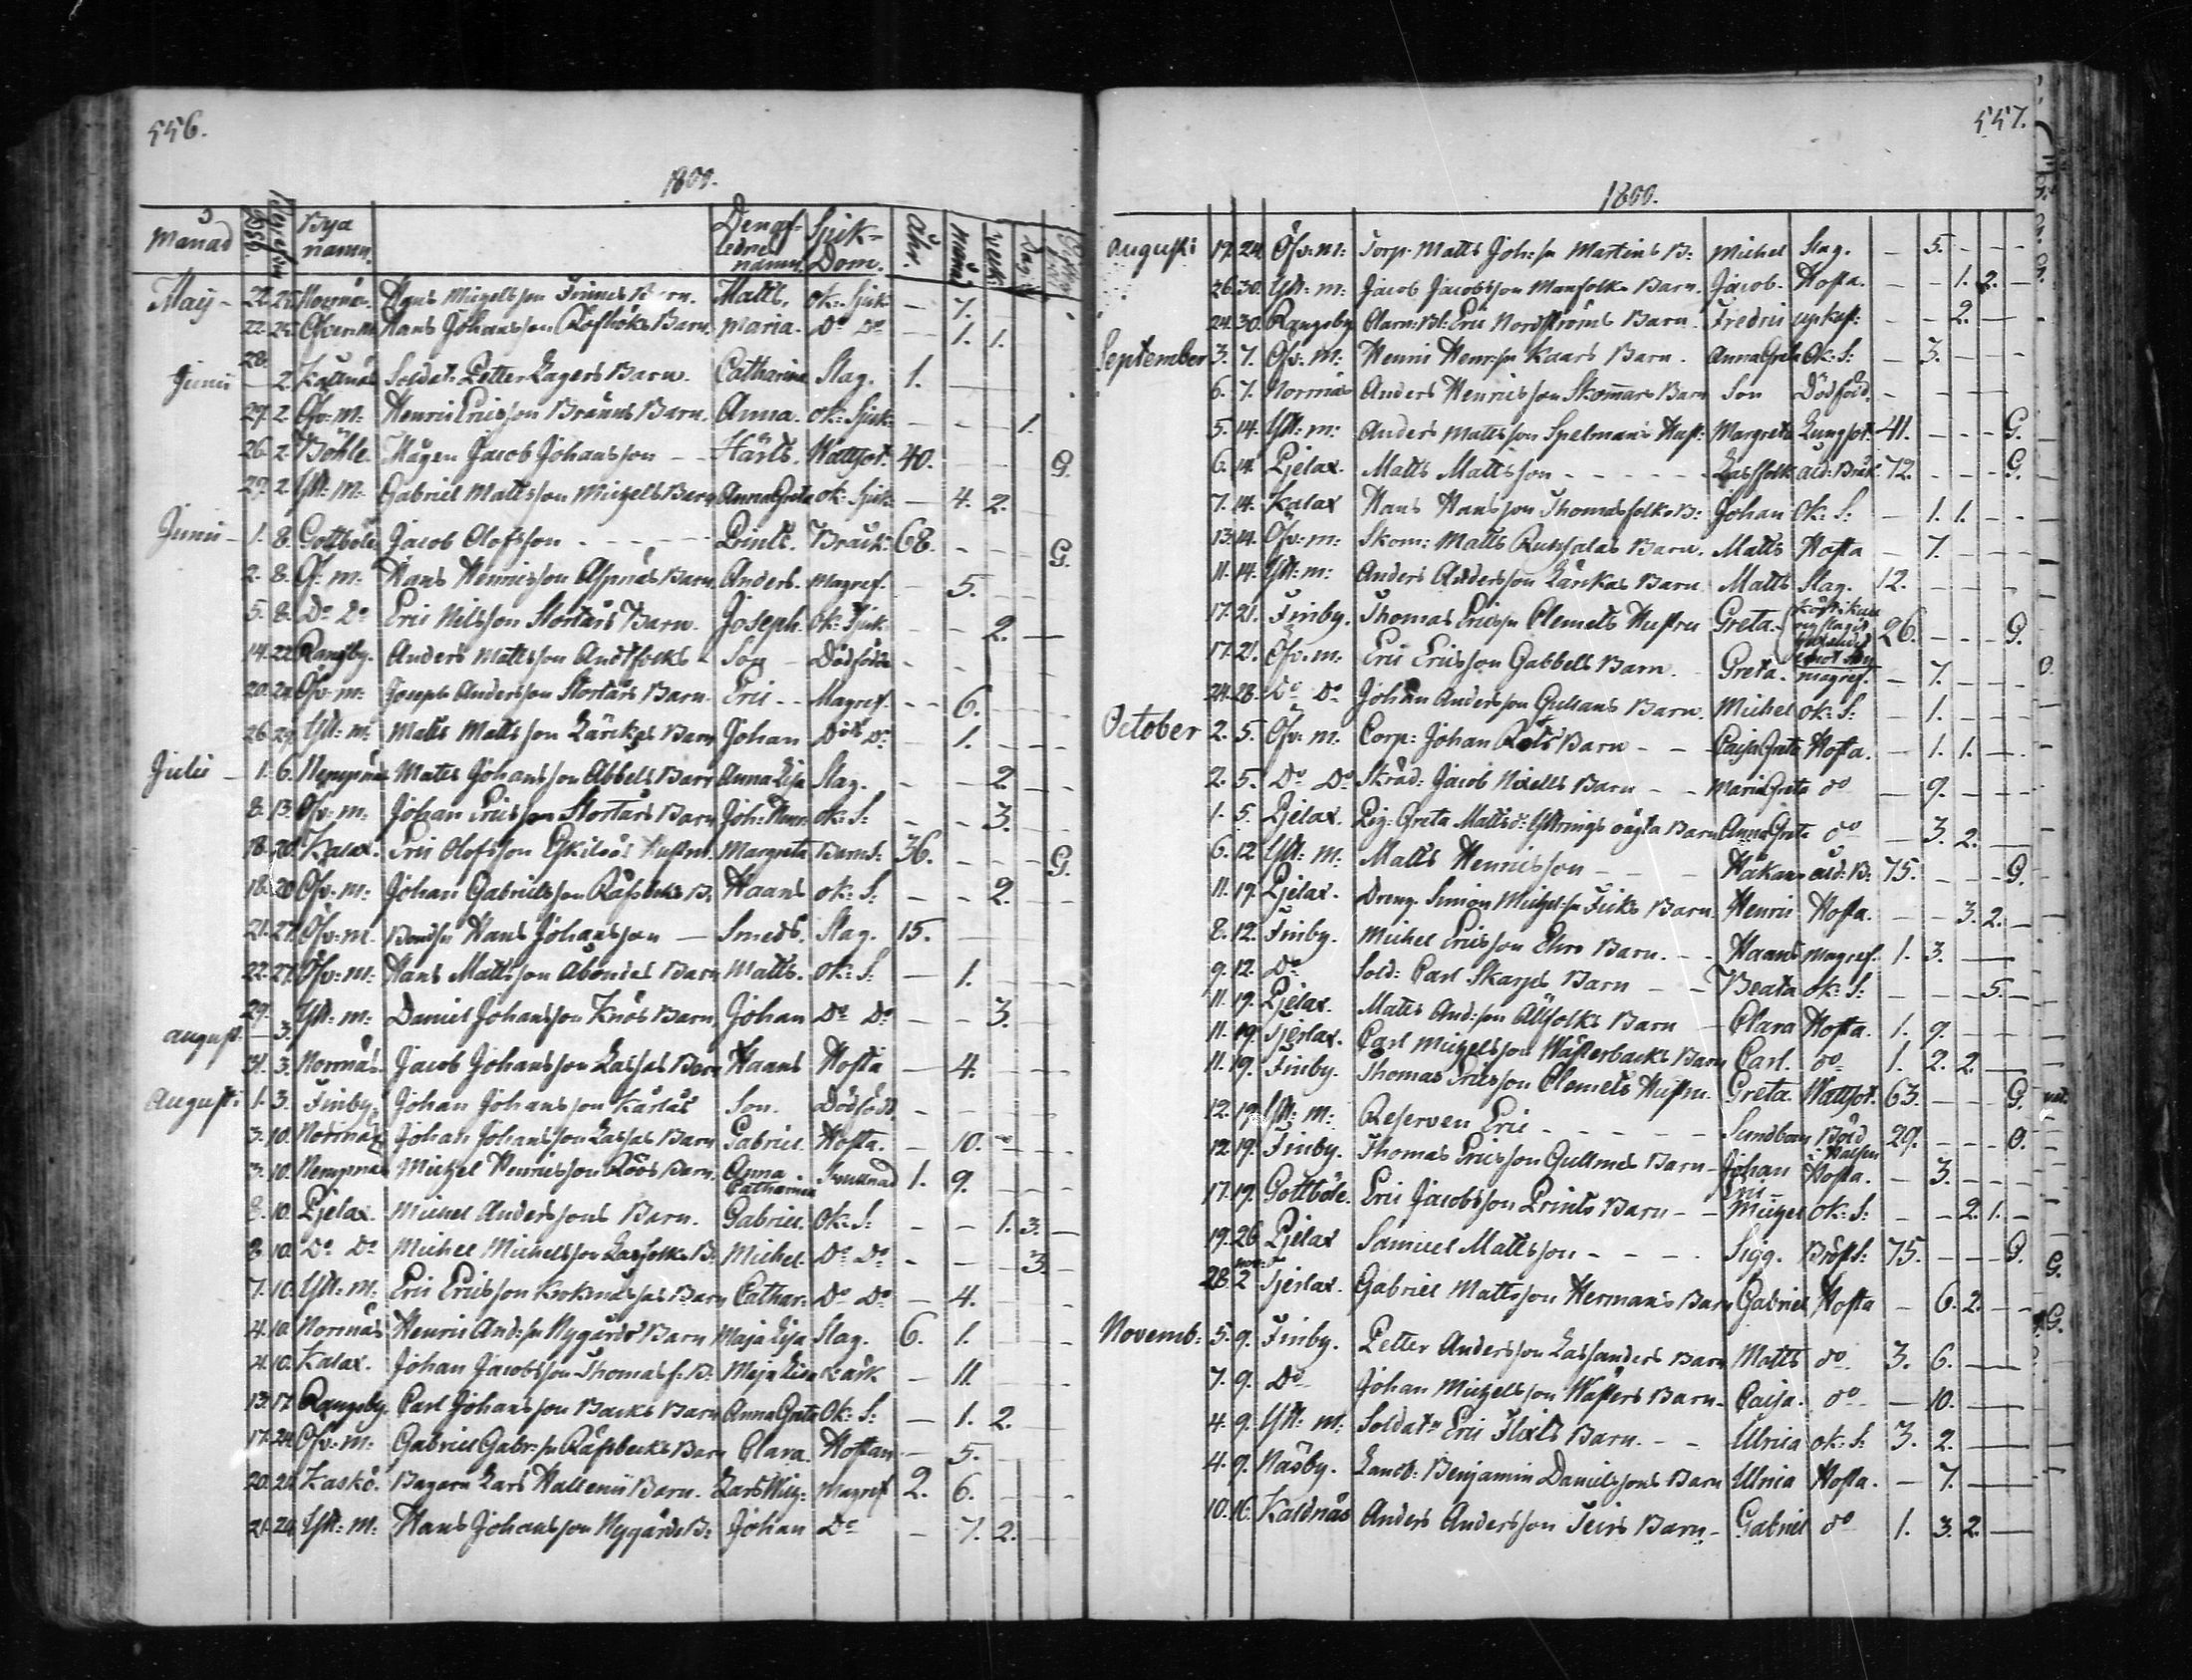 556.
1800.
Månad Död. Begrafn. Bya namn. Den aflednes namn. Sjuk-Dom. Åhr. Månad Veck: Dag
Maij – 22. 25. Norrnäs. Hans Mitzelsson Finnes Barn. Matts. ok: Sjuk – 7.
22. 25. Öfverm. Hans Johansson Röfhöks Barn. Maria. Do Do – 1. 1.
Junii 28. – 2. Kaldnäs Soldat: Petter Lagers Barn. Catharina Slag. 1. –
29. 2. Öfv: m: Henric Ericsson Bränns Barn. Anna. ok: Sjuk: – – – 1.
26. 2. Böhle. Mågen Jacob Johansson – – Härts. Wattsot. 40. – – – G.
29. 2. Ytt: M: Gabriel Mattsson Mitzels Barn Anna Greta ok: Sjuk – 4. 2.
Junii – 1. 8. Gottböle Jacob Olofsson – – – Prints. Bräck: 68. – – – G.
2. 8. Öf: m: Hans Henricsson Aspnäs Barn Anders. Magref. – 5. – –
5. 8. Do Do Eric Nilsson Stortårs Barn. Joseph. ok: Sjuk – – 2. –
14. 22. Rangsby. Anders Mattsson Andtfolks – Son – Dödfödd – – –
20. 24. Öfv: m: Joseph Andersson Stortårs Barn. Eric – – Magref. – – 6. – –
26. 29. Ytt: m: Matts Mattsson Lärckas Barn Johan Dito Do – 1. – – –
Julii – 1. 6. Nempnäs Matts Johansson Abbels Barn Anna Lisa Slag. – – 2. – –
8. 13. Öfv: m: Johan Ericsson Stortårs Barn Joh: Henr: ok: S: – – 3. –
18. 20. Kalax. Eric Olofsson Eskilsös Hustru. Margreta Barns: 36. – – – G.
18. 20. Öfv: m: Johan Gabrielsson Räfsbäks B: Haans ok: S: – – 2. – –
21. 27. Öfv: m. Bonds: Hans Johansson – Smeds. Slag. 15. –
22. 27. Öfv: m: Hans Mattsson Åbondes Barn Matts. ok: S: – 1. – –
August: 29. – 3. Ytt: m: Daniel Johansson Knös Barn. Johan Do Do – – 3. –
31. 3. Norrnäs. Jacob Johansson Lasses Barn Haans Hosta – 4. – –
Augusti 1. 3. Finby. Johan Johansson Kårlås Son. Dödfödd. – – –
3. 10. Norrnäs Johan Johansson Lasses Barn Gabriel. Hosta. – 10. – – –
3. 10. Nempnäs Mitzel Henricsson Röös Barn. Anna Catharina 1. 9. – – –
8. 10. Pjelax. Michel Anderssons Barn. Gabriel. Ok: S: – – 1. 3. –
8. 10. Do Do Michel Michelsson Lassfolks B: Michel. Do Do – – – 3. –
7. 10. Ytt: M: Eric Ericsson Krokmässas Barn Cathar: Do Do – 4. – –
4. 10. Norrnäs Henric And:sn Nygårds Barn Maja Lisa Slag. 6. 1. – – –
4. 10. Kalax. Johan Jacobsson Thomasf: B: Maja Lisa Kåsk – 11. – –
13. 17. Rangsby. Carl Johansson Backs Barn Anna Greta Ok: S: – 1. 2. – –
17. 24. Öfv: M: Gabriel Gabr:sn Räfsbecks Barn Clara. Hostan – 5. – –
20. 24. Kaskö. Bagaren Lars Wallenii Barn. Lars Wilh: Magref 2. 6. – – –
21. 24. Ytt: M: Hans Johansson Nygårds B: Johan Do – 7. 2. –
557.
1800.
Augusti 19. 24. Öfv: m: Torp. Matts Joh:sn Martins B: Michel Slag. – 5. – – –
26. 30. Ytt: m: Jacob Jacobsson Mansfolks Barn. Jacob. Hosta. – – 1. 2. –
24. 30. Rangsby Clarin: Bl: Eric Nordströms Barn. Fredric upkast: – – 2. –
September 3. 7. Öfv: M: Henric Henr:sn Kaars Barn. Anna Greta Ok: S: – 3. – –
6. 7. Norrnäs Anders Henricsson Skomars Barn Son Dödföd. – – – –
5. 14. Ytt: m: Anders Mattsson Spelmans Hust: Margreta Lungsot. 41. – – – G.
6. 14. Pjelax. Matts Mattsson – – – – Lassfolk ald: Bräk. 72. – – – G.
7. 14. Kalax Hans Hansson Thomasfolks B: Johan Ok: S: – 1. 1. – –
13. 14. Öfv: m: Skom: Matts Barn. Matts Hosta – 7. – – –
11. 14. Ytt: m: Anders Andersson Lärkas Barn Matts Slag. 12. – – –
17. 21. Finby. Thomas Ericsn Clemets Hustru Greta. 26. – – – G.
17. 21. Öfv: m: Eric Ericsson Gabbels Barn. – Greta. magref. – 7. – – –
24. 28. Do Do Johan Andersson Gullans Barn. Michel ok: S: – 1. – – –
October 2. 5. Öfv: m: Corp: Johan Röts Barn – – Caisa Greta Hosta. – 1. 1. – –
2. 5. Do Do Skräd: Jacob Nixells Barn – – Maria Greta do – 9. – – –
1. 5. Pjelax. Pig: Greta Mattsd: Yttrings oägta Barn Anna Greta do – 3. 2. –
6. 12. Ytt: M: Matts Henricsson – – – Håkans ald: B: 75. – – – G.
11. 19. Pjelax. Dreng. Simon Mitzel:sn Ficks Barn. Henric Hosta. – – 3. 2. –
8. 12. Finby. Michel Ericsson Ehrs Barn. – – Haans Magref. 1. 3. –
9. 12. Do Sold: Carl Skarps Barn – – Beata ok: S: – – – 5. –
11. 19. Pjelax. Matts And:son Ållfolks Barn – Clara Hosta. 1. 9. – – –
11. 19. Tjerlax. Carl Mitzelsson Wästerbacks Barn Carl. do 1. 2. 2. –
11. 19. Finby. Thomas Ericsson Clemets Hustru. Greta Wattsot. 63. – – – G.
12. 19. Ytt: m: Reserven Eric – – – – – Sundbom Böld i Halsen 29. – – – O.
12. 19. Finby. Thomas Ericsson Gullmes Barn – Johan Hosta. – 3. – – –
17. 19. Gottböle. Eric Jacobsson Prints Barn – – Eric Mitzel ok: S: – – 2. 1. –
19. 26. Pjelax Samuel Mattsson – – – – Sigg. Bröst: 75. – – – G.
28. 2 Tjerlax. Gabriel Mattsson Hermans Barn Gabriel Hosta – 6. 2. – –
Novemb: 5. 9. Finby. Petter Andersson Lassanders Barn Matts do 3. 6. –
7. 9. Do Johan Mitzelsson Wästers Barn – Caisa. do – 10. –
4. 9. Ytt: m: Soldatn Eric Flixts Barn. – – Ulrica ok: S: 3. 2. –
4. 9. Näsby. Landb: Benjamin Danielssons Barn Ulrica Hosta. – 7. –
10. 16. Kaldnäs Anders Andersson Teirs Barn – Gabriel do 1. 3. 2. –